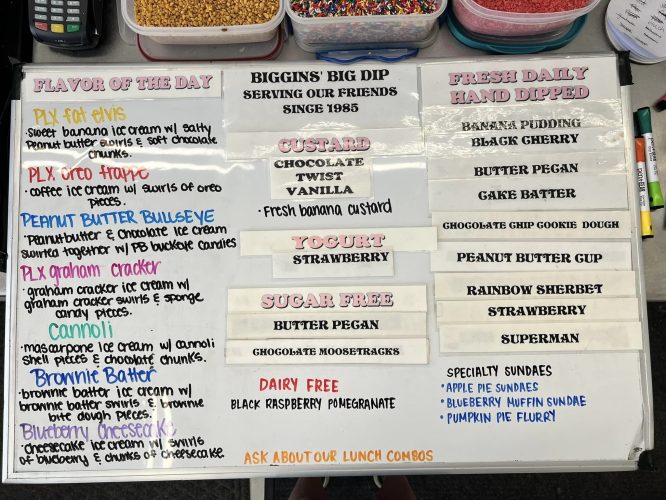 FLAVOR OF THE DAY
PLX fat elvis
• sweet banana ice cream w/ salty
Peanut butter swirls & soft chocolate
chunks.
PLX Oreo frappe
• coffee ice cream w/ swirls of oreo
pieces.
PEANUT BUTTER BULLSEYE
• Peanutbutter & chocolate ice cream
swirled together w/ PB buckeye candies
PLX graham cracker
• graham cracker ice cream w/
graham cracker swirls & sponge
candy pieces.
Cannoli
• mascarpone ice cream w/ cannoli
shell pieces & chocolate chunks.
Brownie Batter
• brownie batter ice cream w/
brownie batter swirls & brownie
bite dough pieces.
Blueberry Cheesecake
• cheesecake ice cream w/ swirls
of blueberry & chunks of cheesecake.
BIGGINS' BIG DIP
SERVING OUR FRIENDS
SINCE 1985
CUSTARD
CHOCOLATE
TWIST
VANILLA
• Fresh banana custard
YOGURT
STRAWBERRY
SUGAR FREE
BUTTER PECAN
CHOCOLATE MOOSETRACKS
DAIRY FREE
BLACK RASPBERRY POMEGRANATE
ASK ABOUT OUR LUNCH COMBOS
FRESH DAILY
HAND DIPPED
BANANA PUDDING
BLACK CHERRY
BUTTER PECAN
CAKE BATTER
CHOCOLATE CHIP COOKIE DOUGH
PEANUT BUTTER CUP
RAINBOW SHERBET
STRAWBERRY
SUPERMAN
SPECIALTY SUNDAES
• APPLE PIE SUNDAES
• BLUEBERRY MUFFIN SUNDAE
• PUMPKIN PIE FLURRY